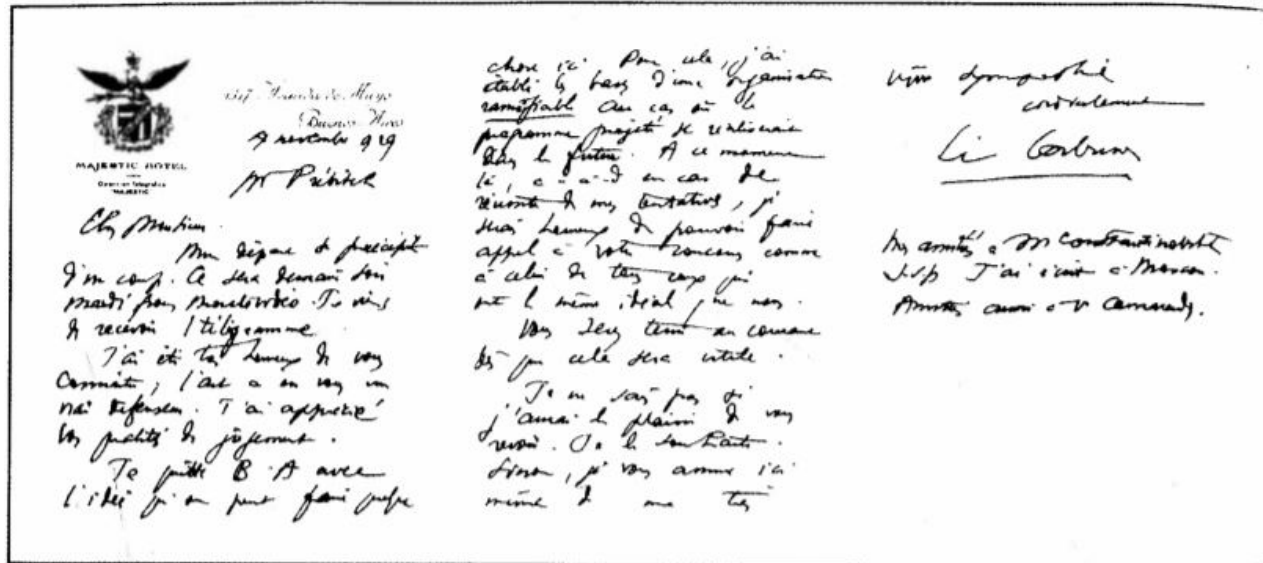 MAJESTIC HOTEL
Direccion Telegrafica
"MAJESTIC"
1317 Avenida de Mayo
Buenos Aires
novembre 929
Mr Prebisch
Cher Monsieur.
Mon départ se précipite
d'un coup. Ce sera demain soir
mardi pour Montevideo. Je viens
de recevoir l télégramme.
J'ai été très heureux de vous
connaître, l'art a en vous un
vrai défenseur. J'ai apprécié
vos qualités de jugement.
Je quitte B. A avec
l'idée qu'on peut faire quelque
chose ici. Pour cela, j'ai
établi les bases d'une organisation
ramifiable au cas où le
programme projeté se réaliserait
dans le futur. A ce moment
là, c à d en cas de
réussite de mes tentatives, je
serai heureux de pouvoir faire
appel à votre concours comme
à celui de tous ceux qui
ont le même idéal que nous.
Vous serez tenu au courant
dès que cela sera utile.
Je ne sais pas si
j'aurai le plaisir de vous
revoir. Je le souhaite.
Sinon, je vous assure ici
même de ma très
vive sympathie
cordialement
Le Corbusier
Mes amitiés à M
J'ai écrit à
Amitiés aussi à